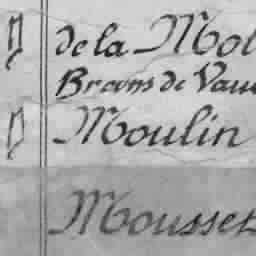 de la Mol
Broons de Vau
Moulin
Mousset